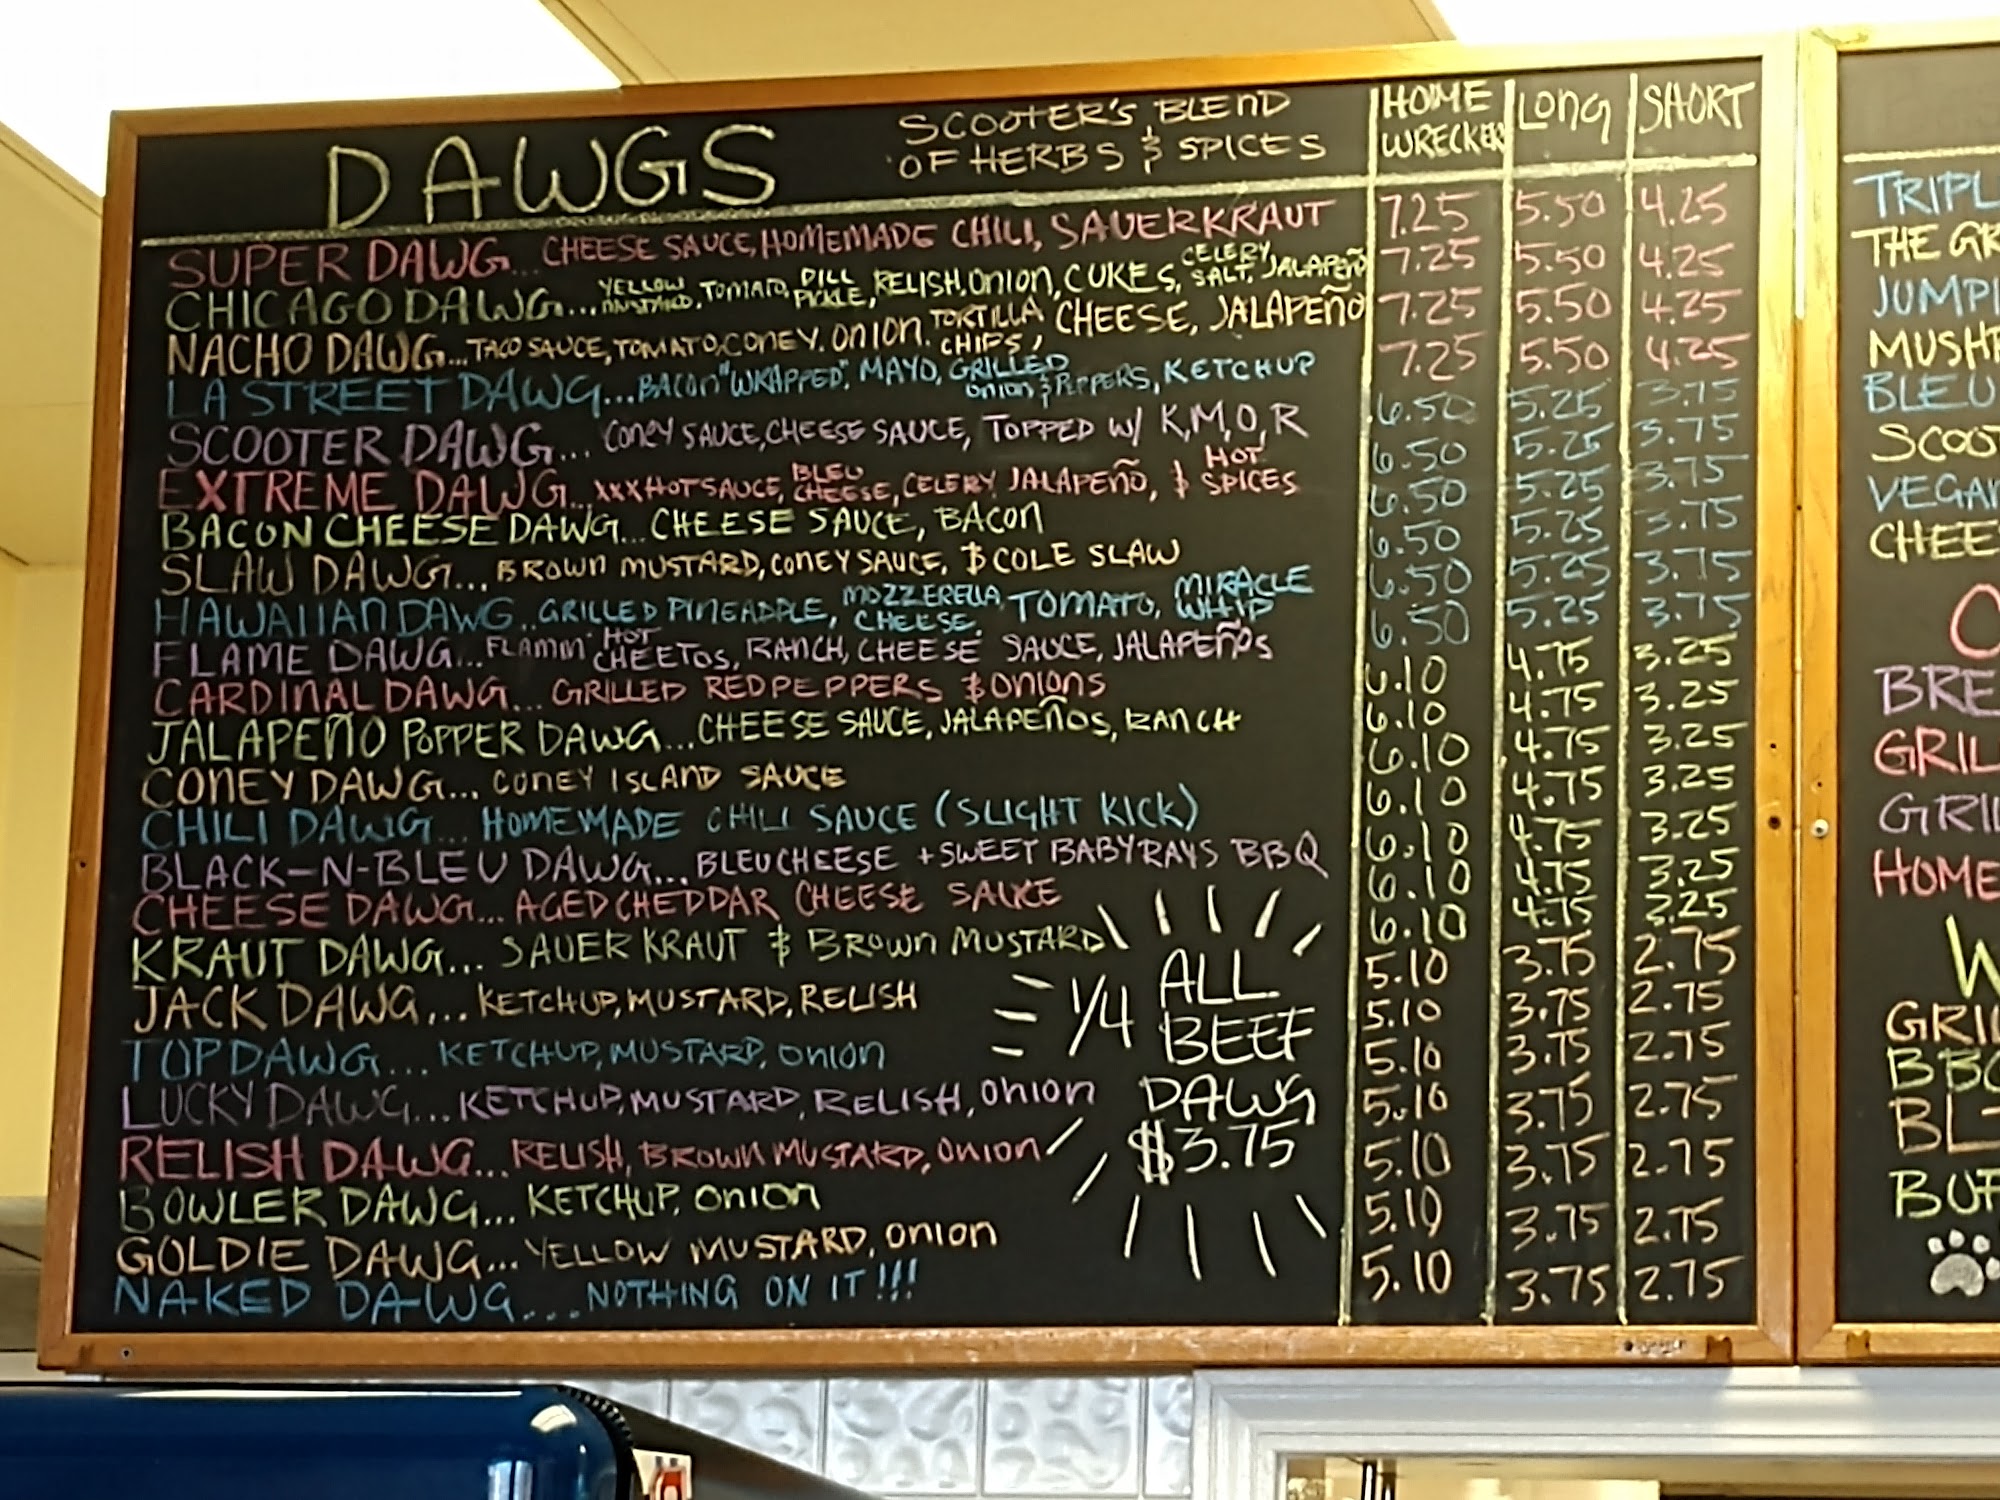 DAWGS SCOOTER'S BLEND OF HERBS & SPICES HOME WRECKER LONG SHORT
SUPER DAWG... CHEESE SAUCE, HOMEMADE CHILI, SAUERKRAUT 7.25 5.50 4.25
CHICAGO DAWG... YELLOW MUSTARD, TOMATO, DILL PICKLE, RELISH, ONION, CUKES, CELERY SALT, JALAPEÑO 7.25 5.50 4.25
NACHO DAWG... TACO SAUCE, TOMATO, CONEY, ONION, TORTILLA CHIPS, CHEESE, JALAPEÑO 7.25 5.50 4.25
LA STREET DAWG... BACON "WRAPPED", MAYO, GRILLED ONION & PEPPERS, KETCHUP 7.25 5.50 4.25
SCOOTER DAWG... CONEY SAUCE, CHEESE SAUCE, TOPPED W/ K, M, O, R 6.50 5.25 3.75
EXTREME DAWG... XXX HOT SAUCE, BLEU CHEESE, CELERY, JALAPEÑO, & HOT SPICES 6.50 5.25 3.75
BACON CHEESE DAWG... CHEESE SAUCE, BACON 6.50 5.25 3.75
SLAW DAWG... BROWN MUSTARD, CONEY SAUCE, & COLE SLAW 6.50 5.25 3.75
HAWAIIAN DAWG... GRILLED PINEAPPLE, MOZZERELLA CHEESE, TOMATO, MIRACLE WHIP 6.50 5.25 3.75
FLAME DAWG... FLAMIN' HOT CHEETOS, RANCH, CHEESE SAUCE, JALAPEÑOS 6.50 5.25 3.75
CARDINAL DAWG... GRILLED RED PEPPERS & ONIONS 6.10 4.75 3.25
JALAPEÑO POPPER DAWG... CHEESE SAUCE, JALAPEÑOS, RANCH 6.10 4.75 3.25
CONEY DAWG... CONEY ISLAND SAUCE 6.10 4.75 3.25
CHILI DAWG... HOMEMADE CHILI SAUCE (SLIGHT KICK) 6.10 4.75 3.25
BLACK-N-BLEU DAWG... BLEU CHEESE + SWEET BABY RAYS BBQ 6.10 4.75 3.25
CHEESE DAWG... AGED CHEDDAR CHEESE SAUCE 6.10 4.75 3.25
KRAUT DAWG... SAUER KRAUT & BROWN MUSTARD 6.10 4.75 3.25
JACK DAWG... KETCHUP, MUSTARD, RELISH 5.10 3.75 2.75
TOP DAWG... KETCHUP, MUSTARD, ONION 5.10 3.75 2.75
LUCKY DAWG... KETCHUP, MUSTARD, RELISH, ONION 5.10 3.75 2.75
RELISH DAWG... RELISH, BROWN MUSTARD, ONION 5.10 3.75 2.75
BOWLER DAWG... KETCHUP, ONION 5.10 3.75 2.75
GOLDIE DAWG... YELLOW MUSTARD, ONION 5.10 3.75 2.75
NAKED DAWG... NOTHING ON IT!!! 5.10 3.75 2.75
1/4 ALL
BEEF
DAWG
$3.75
TRIPL
THE GR
JUMPI
MUSH
BLEU
SCOOT
VEGAN
CHEES
BRE
GRIL
GRIL
HOME
GRIL
BBQ
BLT
BUF